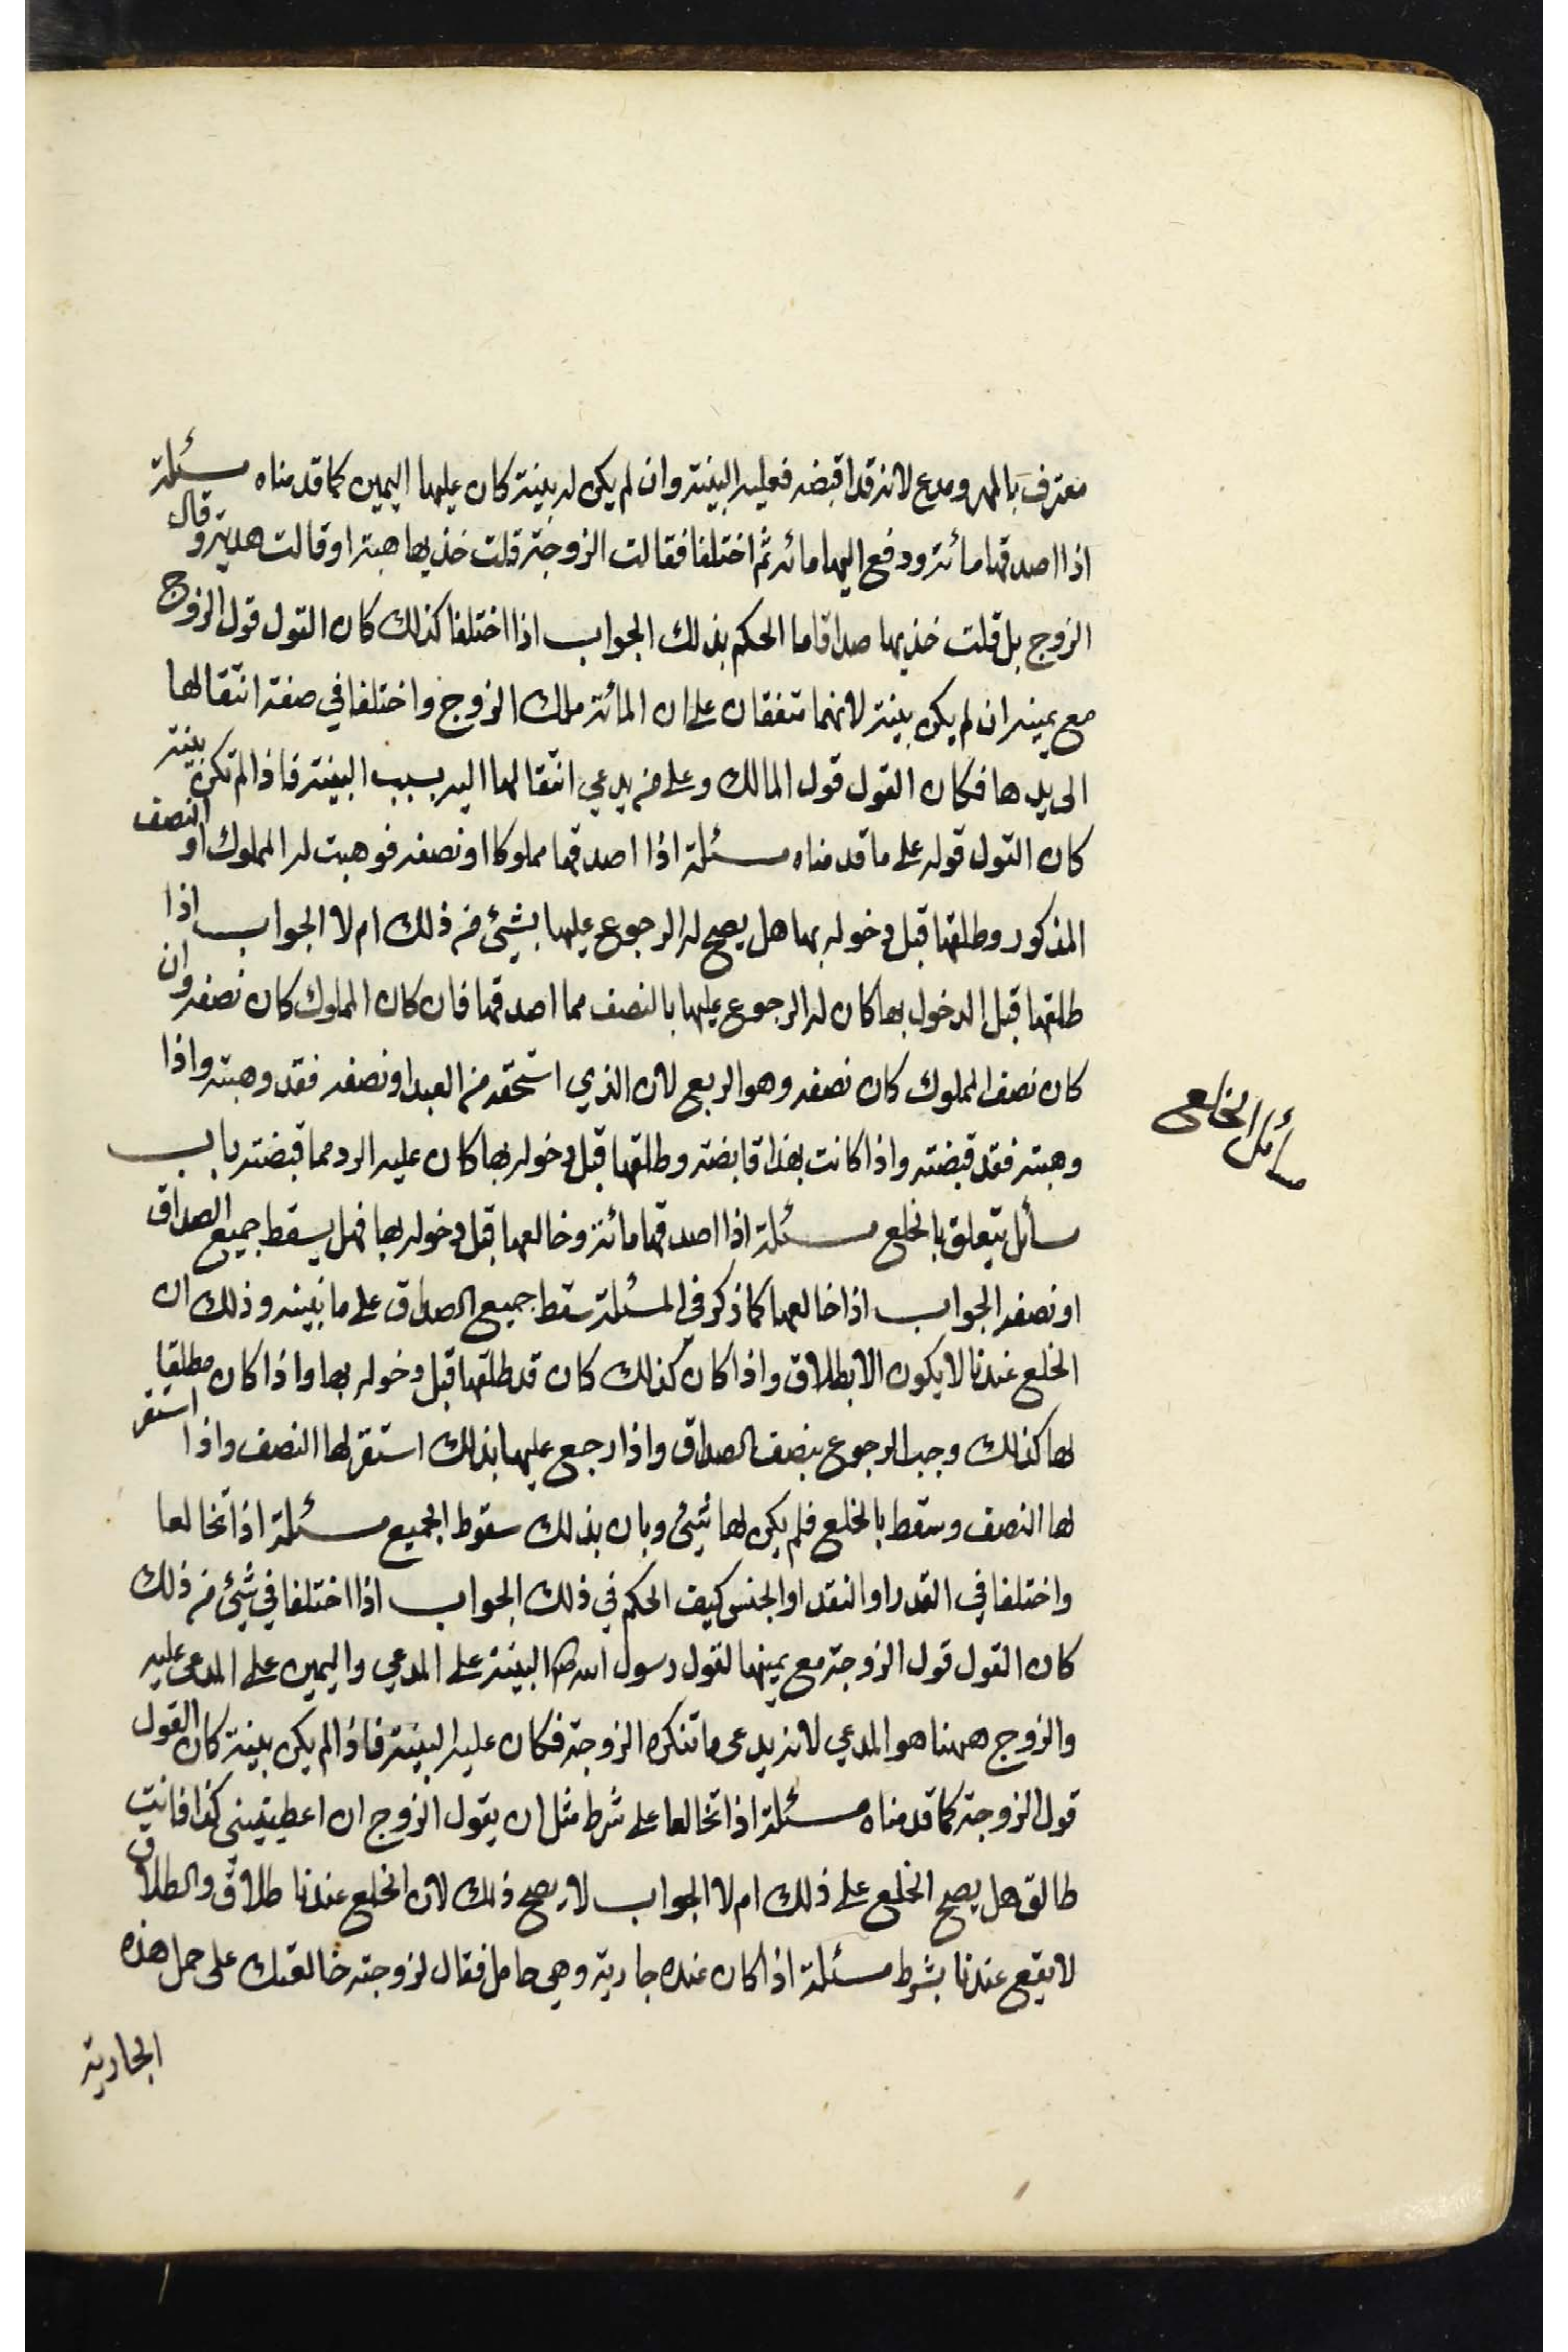 معترف بالمهر ومدع لانه قد اقبضه فعليه البينة وان لم يكن له بينة كان عليها اليمين كما قدمناه مسئلة
اذا اصدقها مائة ودفع اليها مائه ثم اختلفا فقالت الزوجة قلت خذيها هبة او قالت هدية وقال
الزوج بل قلت خذيها صداقا ما الحكم بذلك الجواب اذا اختلفا كذلك كان القول قول الزوج
مع يمينه ان لم يكن بينة لانهما متفقان على ان المائة ملك الزوج واختلفا في صفة انتقالها
الى يدها فكان القول قول المالك وعلى من يدعي انتقالها اليه بسبب البينة فاذا لم تكن بينة
كان القول قوله على ما قدمناه مسئلة اذا اصدقها مملوكا او نصفه فوهبت له المملوك او النصف
المذكور وطلقها قبل دخوله بها هل يصح له الرجوع عليها بشيئ من ذلك ام لا الجواب اذا
طلقها قبل الدخول بها كان له الرجوع عليها بالنصف مما اصدقها فان كان المملوك كان نصفه وان
كان نصف المملوك كان نصفه وهو الربع لان الذي استحقه من العبد او نصفه فقد وهبته واذا
وهبته فقد قبضته واذا كانت بهذا قابضة وطلقها قبل دخوله بها كان عليه الرد مما قبضته باب
مسأئل تتعلق بالخلع مسئلة اذا اصدقها مائة وخالعها قبل دخوله بها فهل يسقط جميع الصداق
او نصفه الجواب اذا خالعها كما ذكر في المسئلة سقط جميع الصداق على ما نبينه وذلك ان
الخلع عندنا لا يكون الا بطلاق واذا كان كذلك كان قد طلقها قبل دخوله بها واذا كان مطلقا
لها كذلك وجب الرجوع بنصف الصداق واذا رجع عليها بذلك استقر لها النصف واذا استقر
لها النصف وسقط بالخلع فلم يكن لها شيئ وبان بذلك سقوط الجميع مسئلة اذا تخالعا
واختلفا في القدر او النقد او الجنس كيف الحكم في ذلك الجواب اذا اختلفا في شيئ من ذلك
كان القول قول الزوجة مع يمينها لقول رسول الله ص البينة على المدعي واليمين على المدعى عليه
والزوج ههنا هو المدعي لانه يدعى ما تنكره الزوجة فكان عليه البينة فاذا لم يكن بينة كان القول
قول الزوجة كما قدمناه مسئلة اذا تخالعا على شرط مثل ان يقول الزوج ان اعطيتيني كذا فانت
طالق هل يصح الخلع على ذلك ام لا الجواب لا يصح ذلك لان الخلع عندنا طلاق والطلاق
لا يقع عندنا بشرط مسئلة اذا كان عنده جارية وهي حامل فقال لزوجته خالعتك على حمل هذه
الجارية
مسأئل الخلع